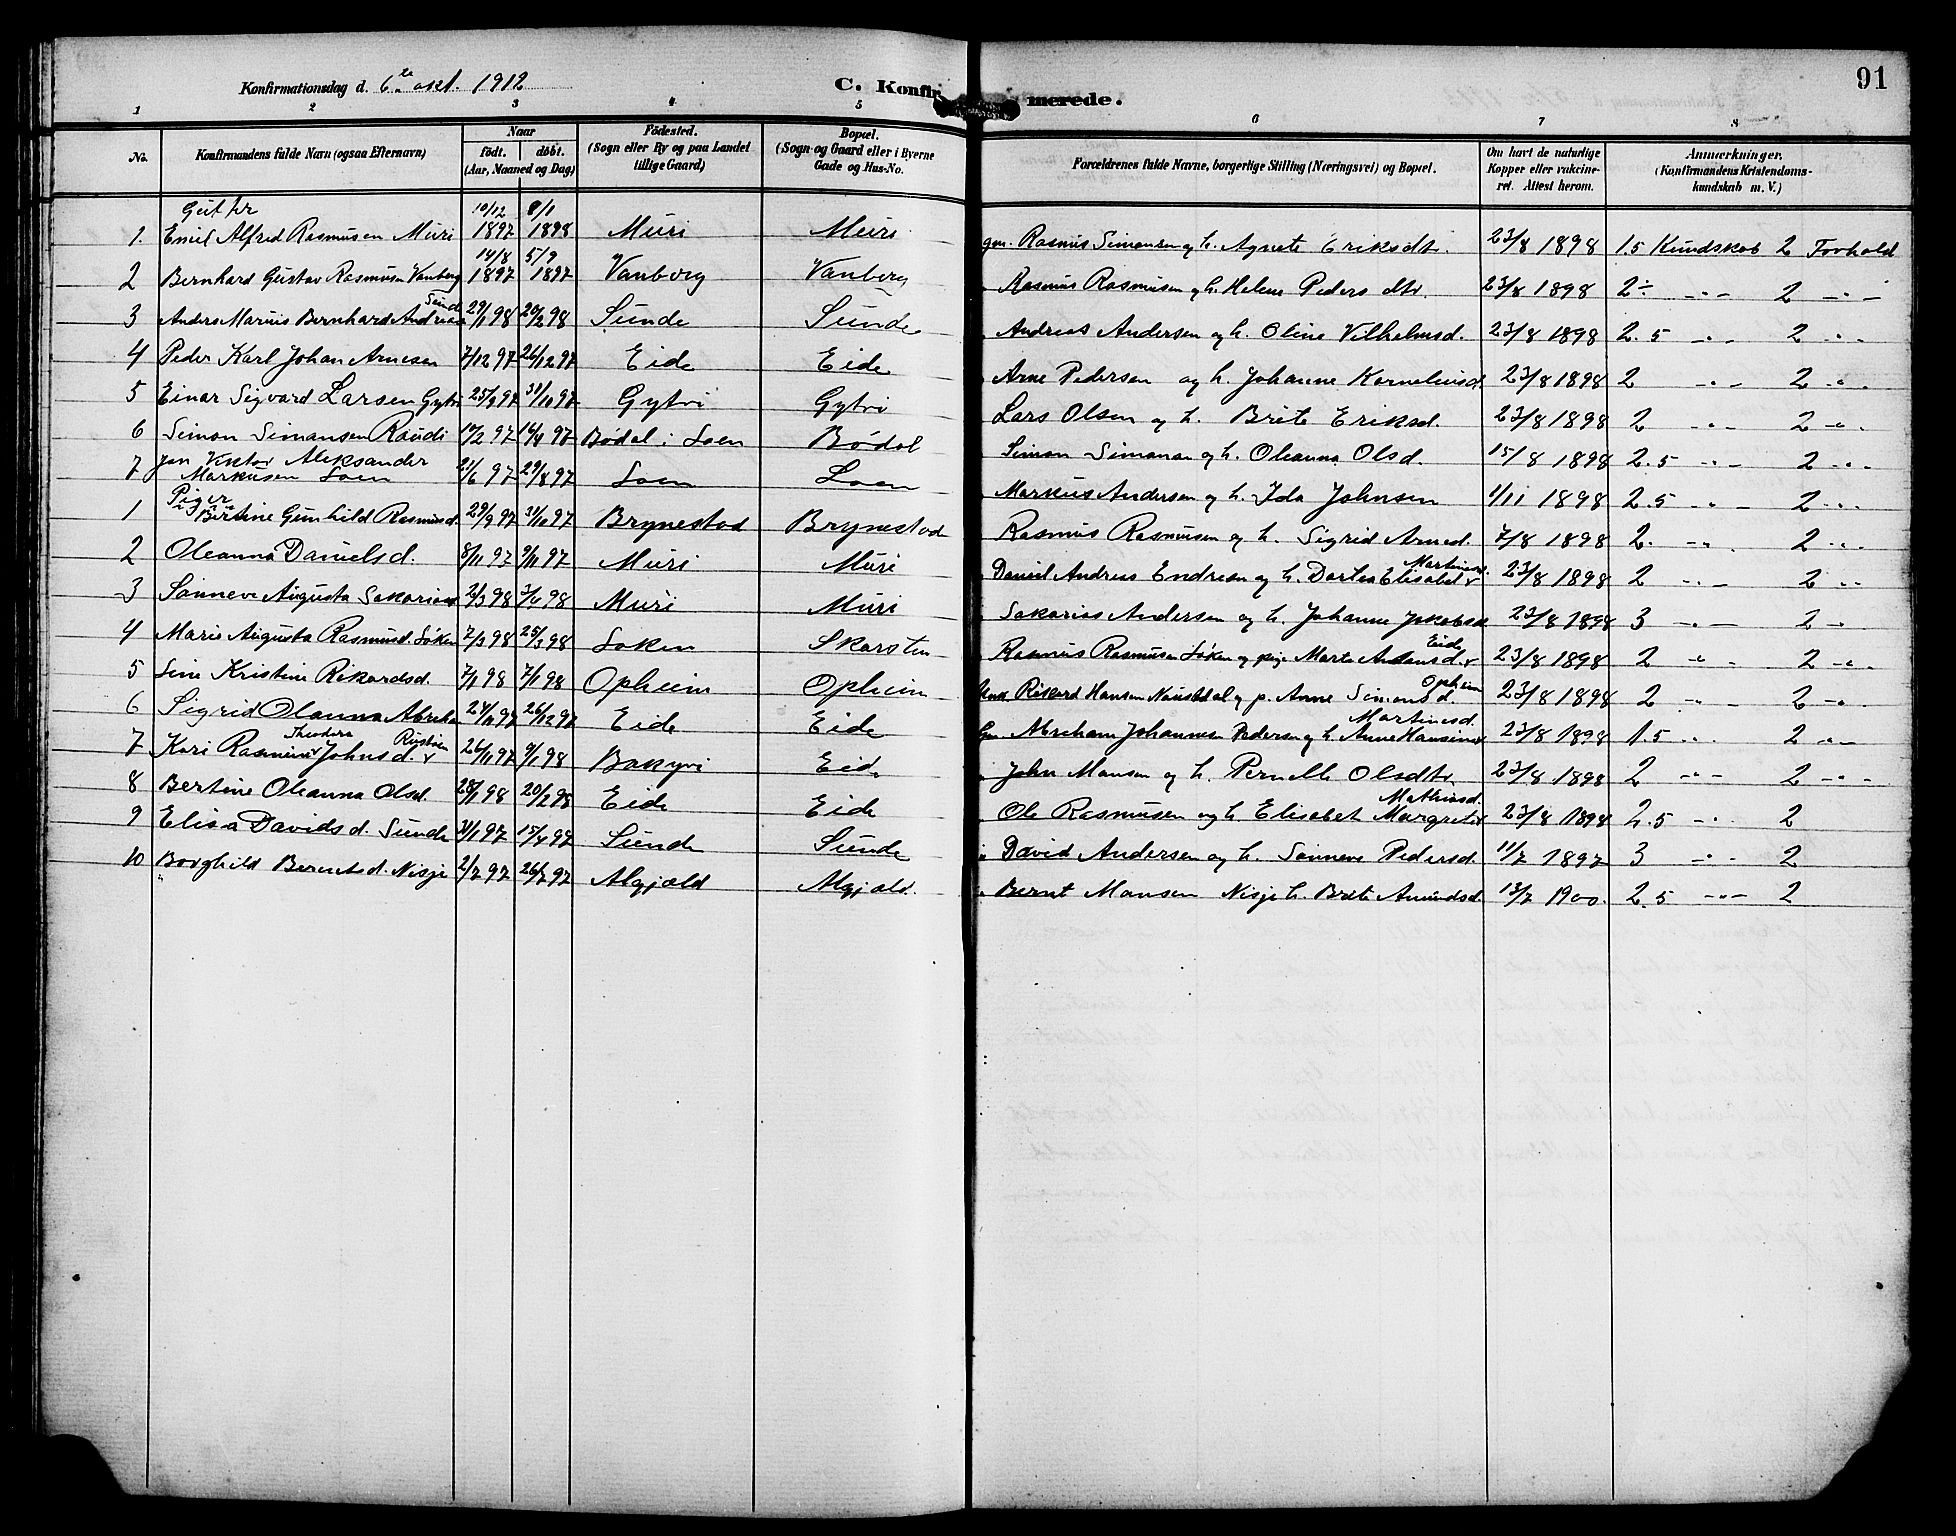 91
Konfirmationsdag d. 6te okt. 1912
C. Konfirmerede.
1 2 3 4 5 6 7 8
No. Konfirmandens fulde Navn (ogsaa Efternavn) Naar födt. döbt. (Aar, Maaned og Dag) Födested. (Sogn eller By og paa Landet tillige Gaard) Bopæl. (Sogn og Gaard eller i Byerne Gade og Hus-No. Forældrenes fulde Navne, borgerlige Stilling (Næringsvei) og Bopæl. Om havt de naturlige Kopper eller vakcineret. Attest herom. Anmærkninger. (Konfirmandens Kristendomskundskab m. V.)
Gutter
1. Emil Alfred Rasmusen Muri 10/12 1897 8/1 1898 Muri Muri gm. Rasmus Simonsen og h. Agnete Eriksdtr. 23/8 1898 1.5 Kundskab 2 Forhold
2 Bernhard Gustav Rasmusen Vanberg 14/8 1897 5/9 1897 Vanberg Vanberg Rasmus Rasmusen og h. Helene Peders dtr. 23/8 1898 2÷ -"- 2 -"-
3 Anders Marius Bernhard Andreasen Sunde 29/1 98 20/2 98 Sunde Sunde Andreas Andersen og h. Oline Vilhelmsd. 23/8 1898 2.5 -"- 2 -"-
4 Peder Karl Johan Arnesen 7/12 97 26/12 97 Eide Eide Arne Pedersen og h. Johanne Korneliusd. 23/8 1898 2 -"- 2 -"-
5 Einar Sigvard Larsen Gytri 25/9 97 31/10 97 Gytri Gytri Lars Olsen og h. Brite Eriksd. 23/8 1898 2 -"- 2 -"-
6 Simon Simonsen Raudi 14/2 97 16/4 97 Bödal i Loen Bödal Simon Simonsen og h. Oleanna Olsd. 15/8 1898 2.5 -"- 2 -"-
7 Jon Viktor Aleksander Markusen Loen 21/6 97 29/8 97 Loen Loen Markus Andersen og h. Ida Johnsen 1/11 1898 2.5 -"- 2 -"-
Piger
1 Bertine Gunhild Rasmusd. 29/9 97 31/10 97 Brynestad Brynestad Rasmus Rasmusen og h. Sigrid Arnesd. 7/8 1898 2. -"- 2 -"-
2 Oleanna Danielsd. 8/11 97 9/11 97 Muri Muri Daniel Andreas Endresen og h. Dortea Elisabet Martinusd. 23/8 1898 2 -"- 2 -"-
3 Sanneve Augusta Sakariasd. 2/3 98 3/4 98 Muri Muri Sakarias Andersen og h. Johanne Jakobsd. 23/8 1898 3 -"- 2 -"-
4 Marie Augusta Rasmusd. Löken 7/3 98 25/3 98 Loken Skarsten Rasmus Rasmusen Löken og pige Marte Antonsd. Eide 23/8 1898 2 -"- 2 -"-
5 Line Kristine Rikardsd. 7/1 98 7/1 98 Opheim Opheim Rikard Hansen Naustdal og p. Anne Simonsd. Opheim 23/8 1898 2 -"- 2 -"-
6 Sigrid Olanna 24/11 97 26/12 97 Eide Eide Gm. Abraham Johannesen Pedersen og h. Anne Hansine Martinusd. 23/8 1898 1.5 -"- 2 -"-
7 Kari Rasmine Theodora Johnsd. 26/11 97 9/1 98 Eide John Monsen og h. Pernelle Olsdtr. 23/8 1898 2 -"- 2 -"-
8 Bertine Oleanna Olsd. 28/1 98 20/2 98 Eide Eide Ole Rasmusen og h. Elisabet Margrete Mathiasd. 23/8 1898 2.5 -"- 2
9 Elisa Davidsd. Sunde 31/1 97 15/4 97 Sunde Sunde David Andersen og h. Sanneve Pedersd. 11/7 1897 3 -"- 2
10 Borghild Berentsd. Nisje 2/7 97 26/7 97 Algjæld Algjæld. Bernt Monsen Nisje h. Brite Amundsd. 13/7 1900. 2.5 -"- 2